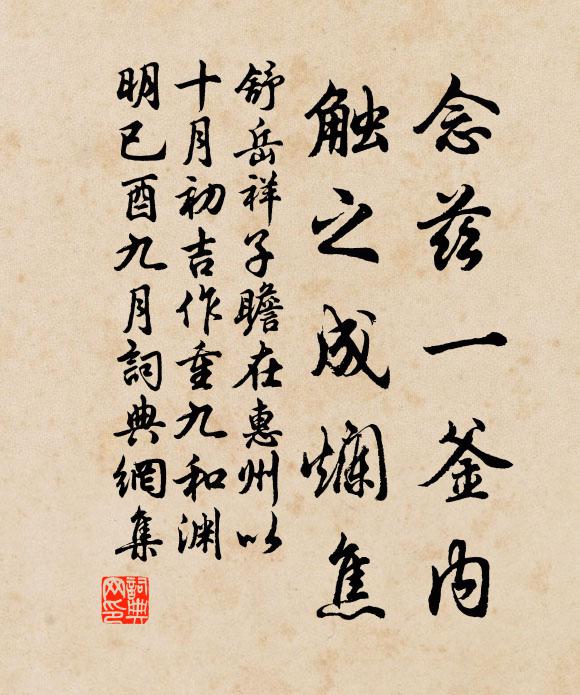 念兹一釜内
触之成爛焦
舒岳祥子瞻在惠州以
十月初吉作重九和渊
明己酉九月詞典網集
詞典
网印